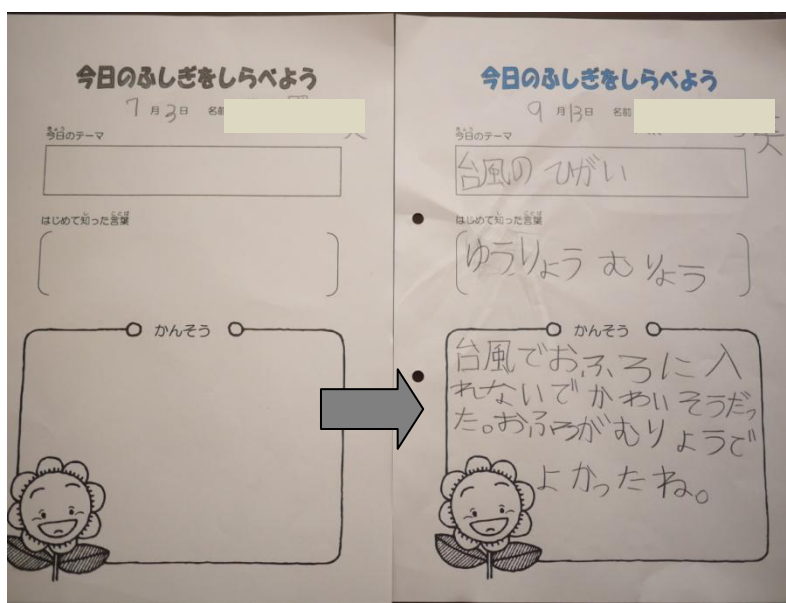 今日のふしぎをしらべよう
7月3日 名前
今日のテーマ
はじめて知った言葉
かんそう
今日のふしぎをしらべよう
9月13日 名前
今日のテーマ
台風の ひがい
はじめて知った言葉
ゆうりょう むりょう
かんそう
台風でおふろに入
れないでかわいそうだっ
た。おふろがむりょうで
よかったね。